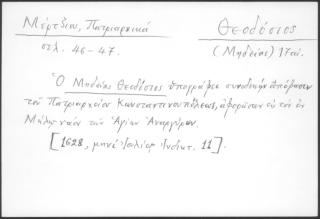 Μέρτζιου, Πατριαρχικά
σελ. 46-47.
Θεοδόσιος
(Μηδείας) 17 αι.
Ὁ Μηδείας Θεοδόσιος ὑπογράφει συνοδικὴν ἀπόφασιν
τοῦ Πατριαρχείου Κωνσταντινουπόλεως, ἀφορῶσαν εἰς τὸν ἐν
ναὸν τῶν Ἁγίων Ἀναργύρων.
[1628, μηνὶ Ἰουλίῳ Ἰνδικτ. 11].